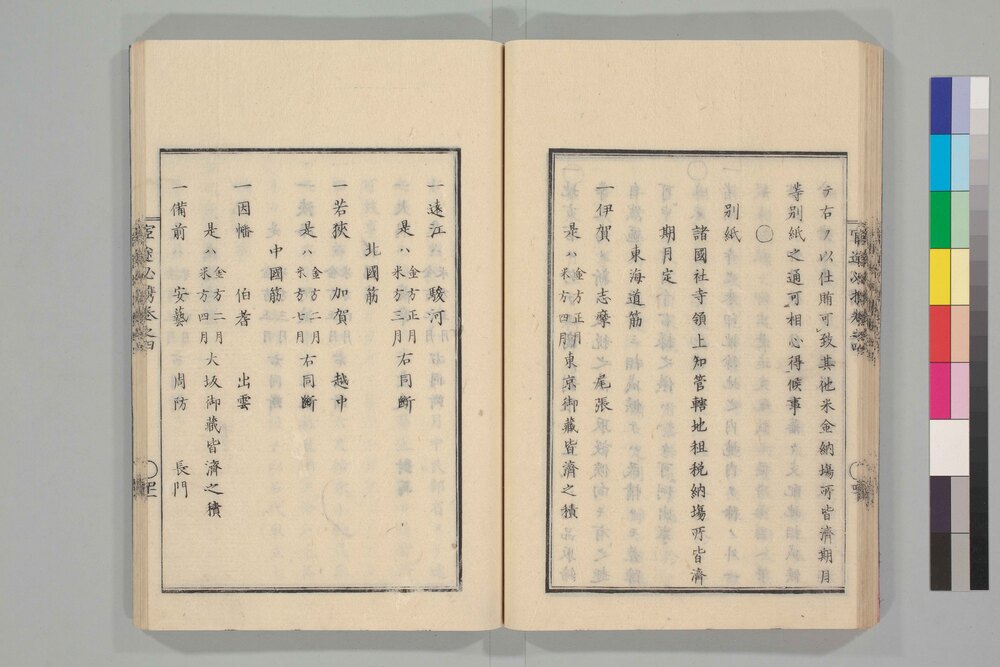 テ右ノ以仕賄可致其他米金納場所皆濟期月
等別紙之通可相心得候事
〇
別紙
諸國社寺領上知管轄地租税納場所皆濟
期月定
東海道筋
一伊賀 志摩 尾張
是ハ金方正月米方四月東京御藏皆濟之積
一遠江 駿河
是ハ金方正月米方三月右同断
北國筋
一若狹 加賀 越中
是ハ金方二月米方七月右同断
中國筋
一因幡 伯耆 出雲
是ハ金方二月米方四月大坂御藏皆濟之積
一備前 安藝 周防 長門
官途必携卷之四